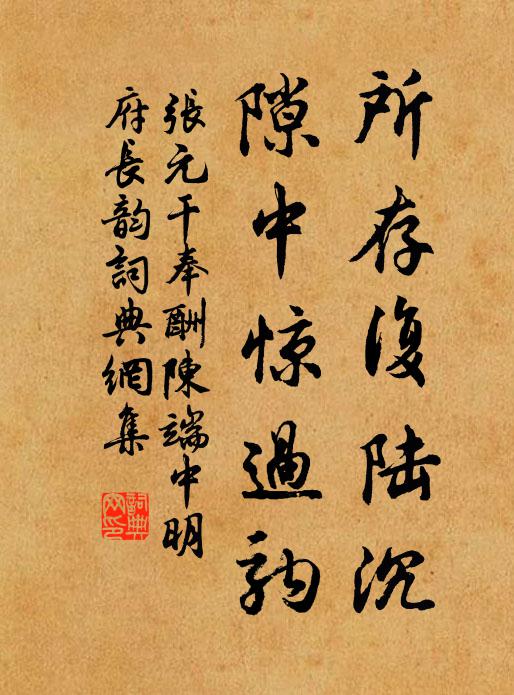 所存復陆沉
隙中惊過駒
張元干奉酬陳端中明
府長韵詞典網集
詞典网印